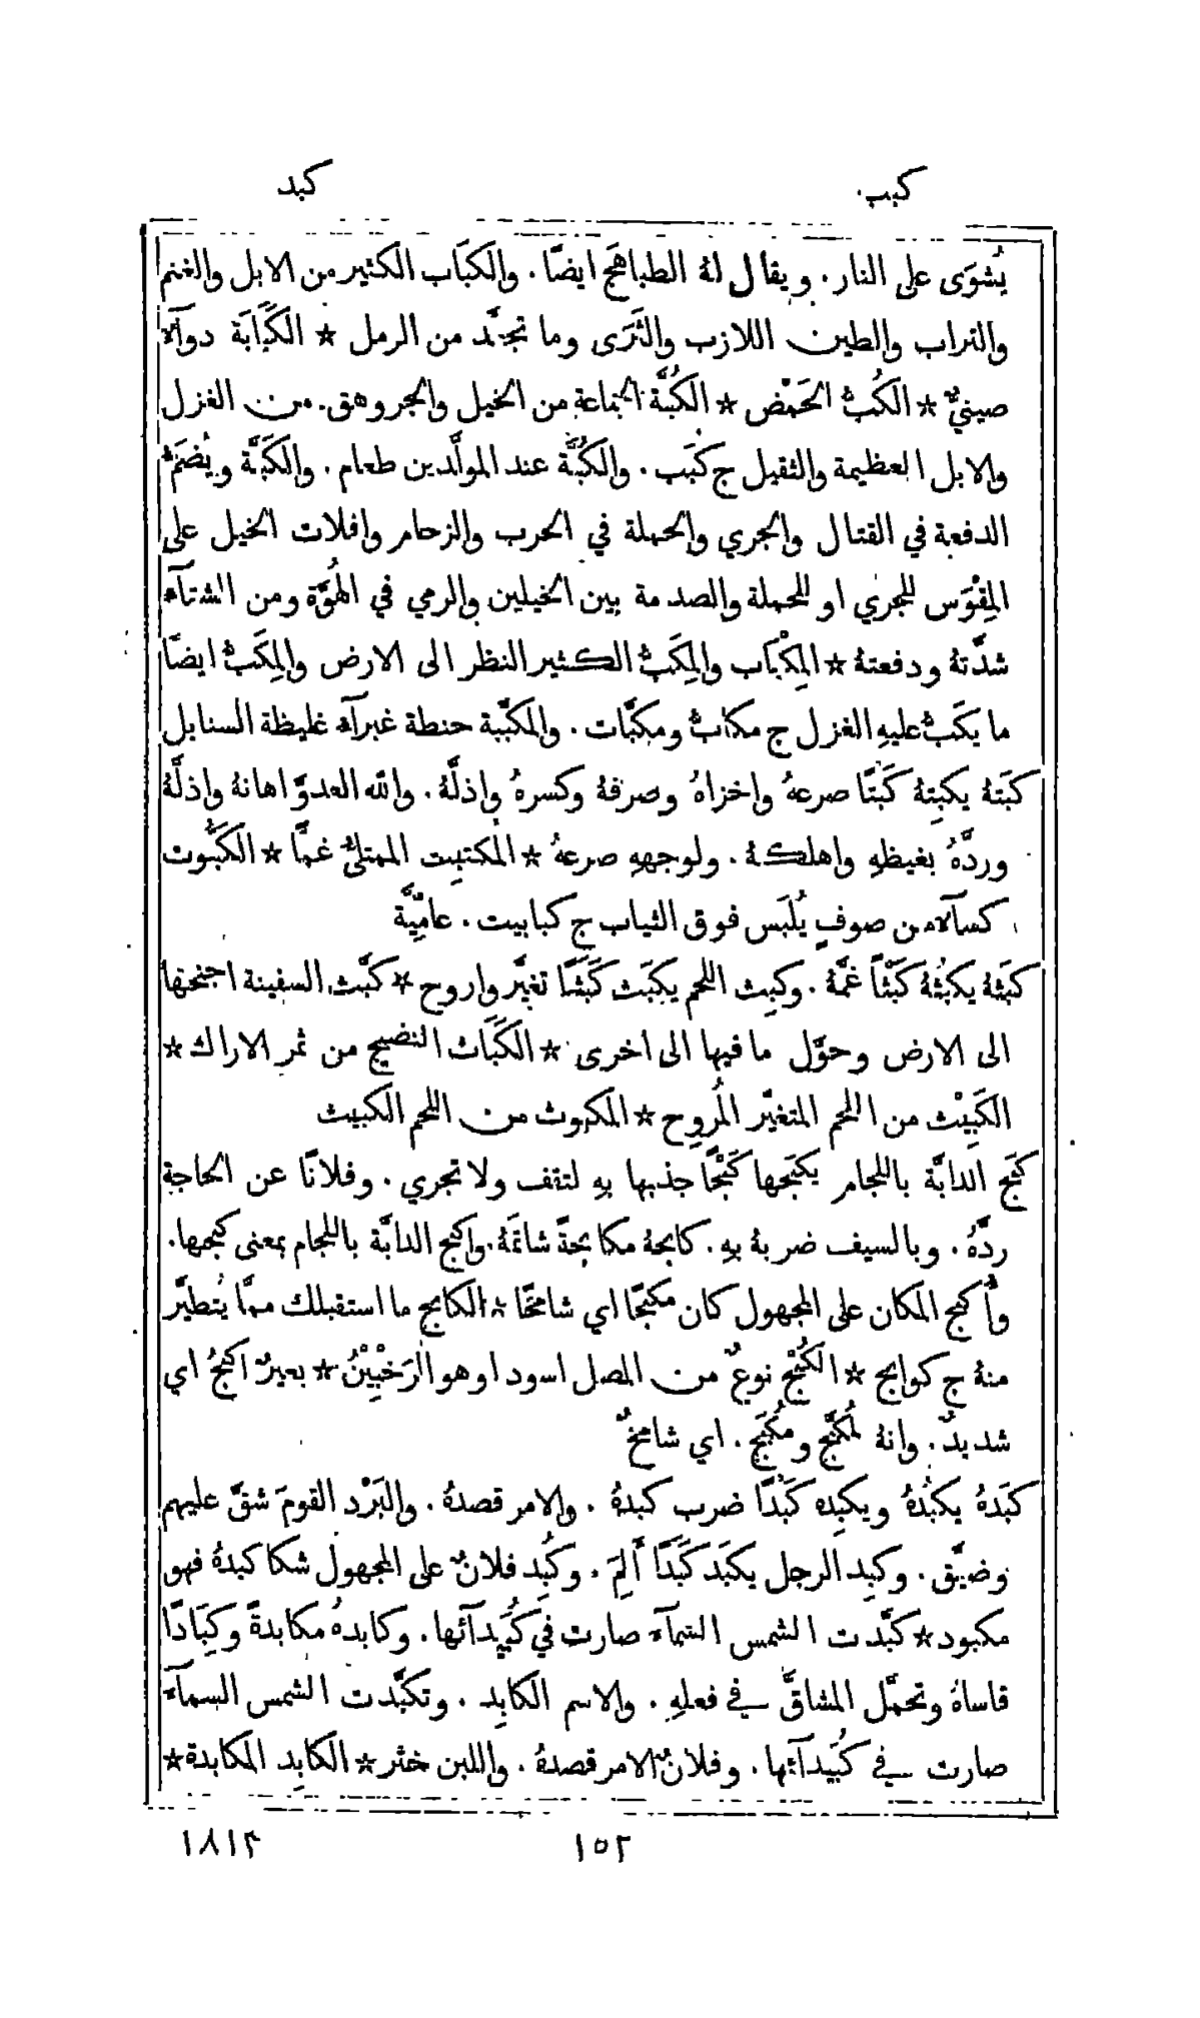 كبب
كبد
يُشوَى على النار. ويقال لهُ الطباهَج ايضًا. والكبَاب الكثير من الابل والغنم
والتراب والطين اللازب والثَّرَى وما تجعَّد من الرمل * الكَبَابَة دوآءٌ
صينيٌّ * الكُبُّ الحَمْض * الكُبَّة الجماعة من الخيل والجروهق من الغزل
والابل العظيمة والثقيل ج كبَب. والكُبَّة عند المولَّدين طعام. والكَبَّة ويُضَمُّ
الدفعة في القتال والجري والحملة في الحرب والزحام وافلات الخيل على
المِقْوَس للجري او للحملة والصدمة بين الخيلين والرمي في الهُوَّة ومن الشتآء
شدَّتهُ ودفعتهُ * المِكْبَاب والمِكَبُّ الكثير النظر الى الارض والمِكَبُّ ايضًا
ما يكَبُّ عليهِ الغزل ج مكابُّ ومكبَّات. والمكبَّبة حنطة غبرآء غليظة السنابل
كبَتَهُ يكبِتهُ كَبْتًا صرعهُ واخزاهُ وصرفهُ وكسرهُ واذلَّهُ. والله العدوَّ اهانهُ واذلَّهُ
وردَّهُ بغيظهِ واهلكهُ. ولوجههِ صرعهُ * المكتبِت الممتلئُ غمًّا * الكَبُّوت
كسآءٌ من صوفٍ يُلبَس فوق الثياب ج كبابيت. عامّيَّة
كبَثَهُ يكبُثهُ كَبْثًا غمَّهُ. وكبِث اللحم يكبَث كَبَثًا تغيَّر واروح * كبَّث السفينة اجنحها
الى الارض وحوَّل ما فيها الى اخرى * الكَبَاث النضيج من ثمر الاراك *
الكَبِيْث من اللحم المتغيّر المُروِح * المكبوث من اللحم الكبيث
كبَح الدابَّة باللجام يكبَحها كَبْحًا جذبها بهِ لتقف ولا تجري. وفلانًا عن الحاجة
ردَّهُ. وبالسيف ضربهُ بهِ. كابحهُ مكابحةً شاتمَهُ. واكبح الدابَّة باللجام بمعنى كبحها.
وأُكبح المكان على المجهول كان مكبَحًا اي شامخًا * الكابح ما استقبلك ممَّا يُتطيَّر
منهُ ج كوابح * الكُبْح نوعٌ من المصل اسود او هو الرَخْبِيْنُ * بعيرٌ اكبحُ اي
شديدٌ. وانهُ لمُكبَّح ومُكبَح. اي شامخٌ
كبَدَهُ يكبُدهُ ويكبِده كَبْدًا ضرب كبدهُ. والامر قصدهُ. والبَرْد القومَ شقَّ عليهم
وضيَّق. وكبِد الرجل يكبَد كَبَدًا أَلِمَ. وكُبِد فلانٌ على المجهول شكا كبدهُ فهو
مكبود * كبَّدت الشمس السَّمآءَ صارت في كُبَيدآئها. وكابدهُ مكابدةً وكِبَادًا
قاساهُ وتحمَّل المشاقَّ في فعلهِ. والاسم الكابِد. وتكبَّدت الشمس السمآءَ
صارت في كُبَيدآئها. وفلانٌ الامر قصدهُ. واللبن خثر * الكابِد المكابدة *
١٥٢
١٨١٢